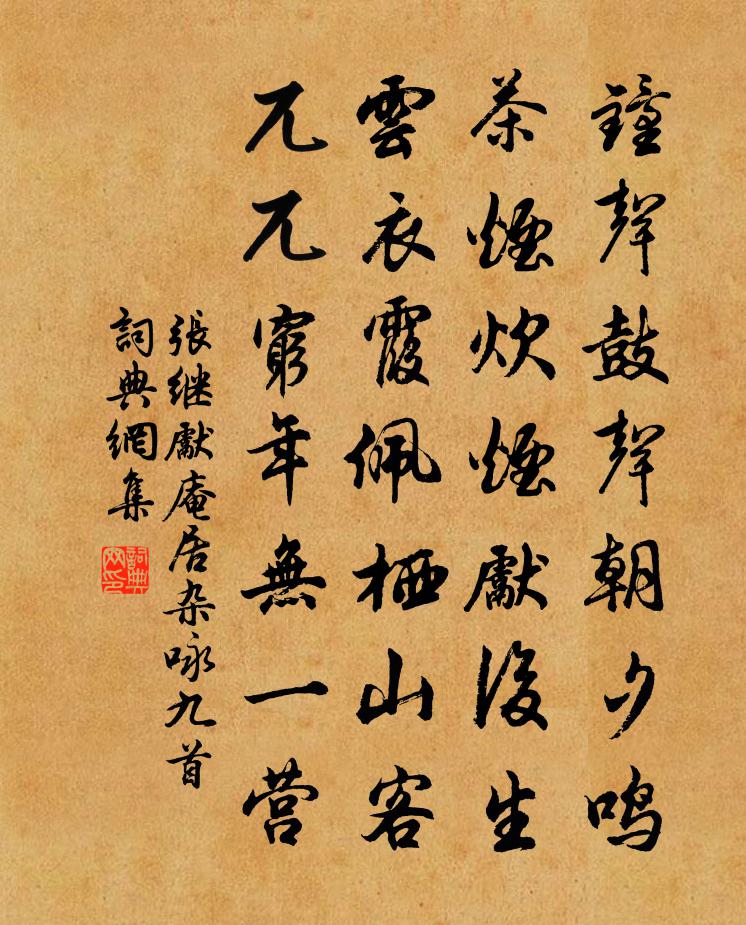 鐘聲鼓聲朝夕鸣
茶煙炊煙獻後生
雲衣霞佩栖山客
兀兀窮年無一营
張继獻庵居杂咏九首
詞典網集
詞典网印